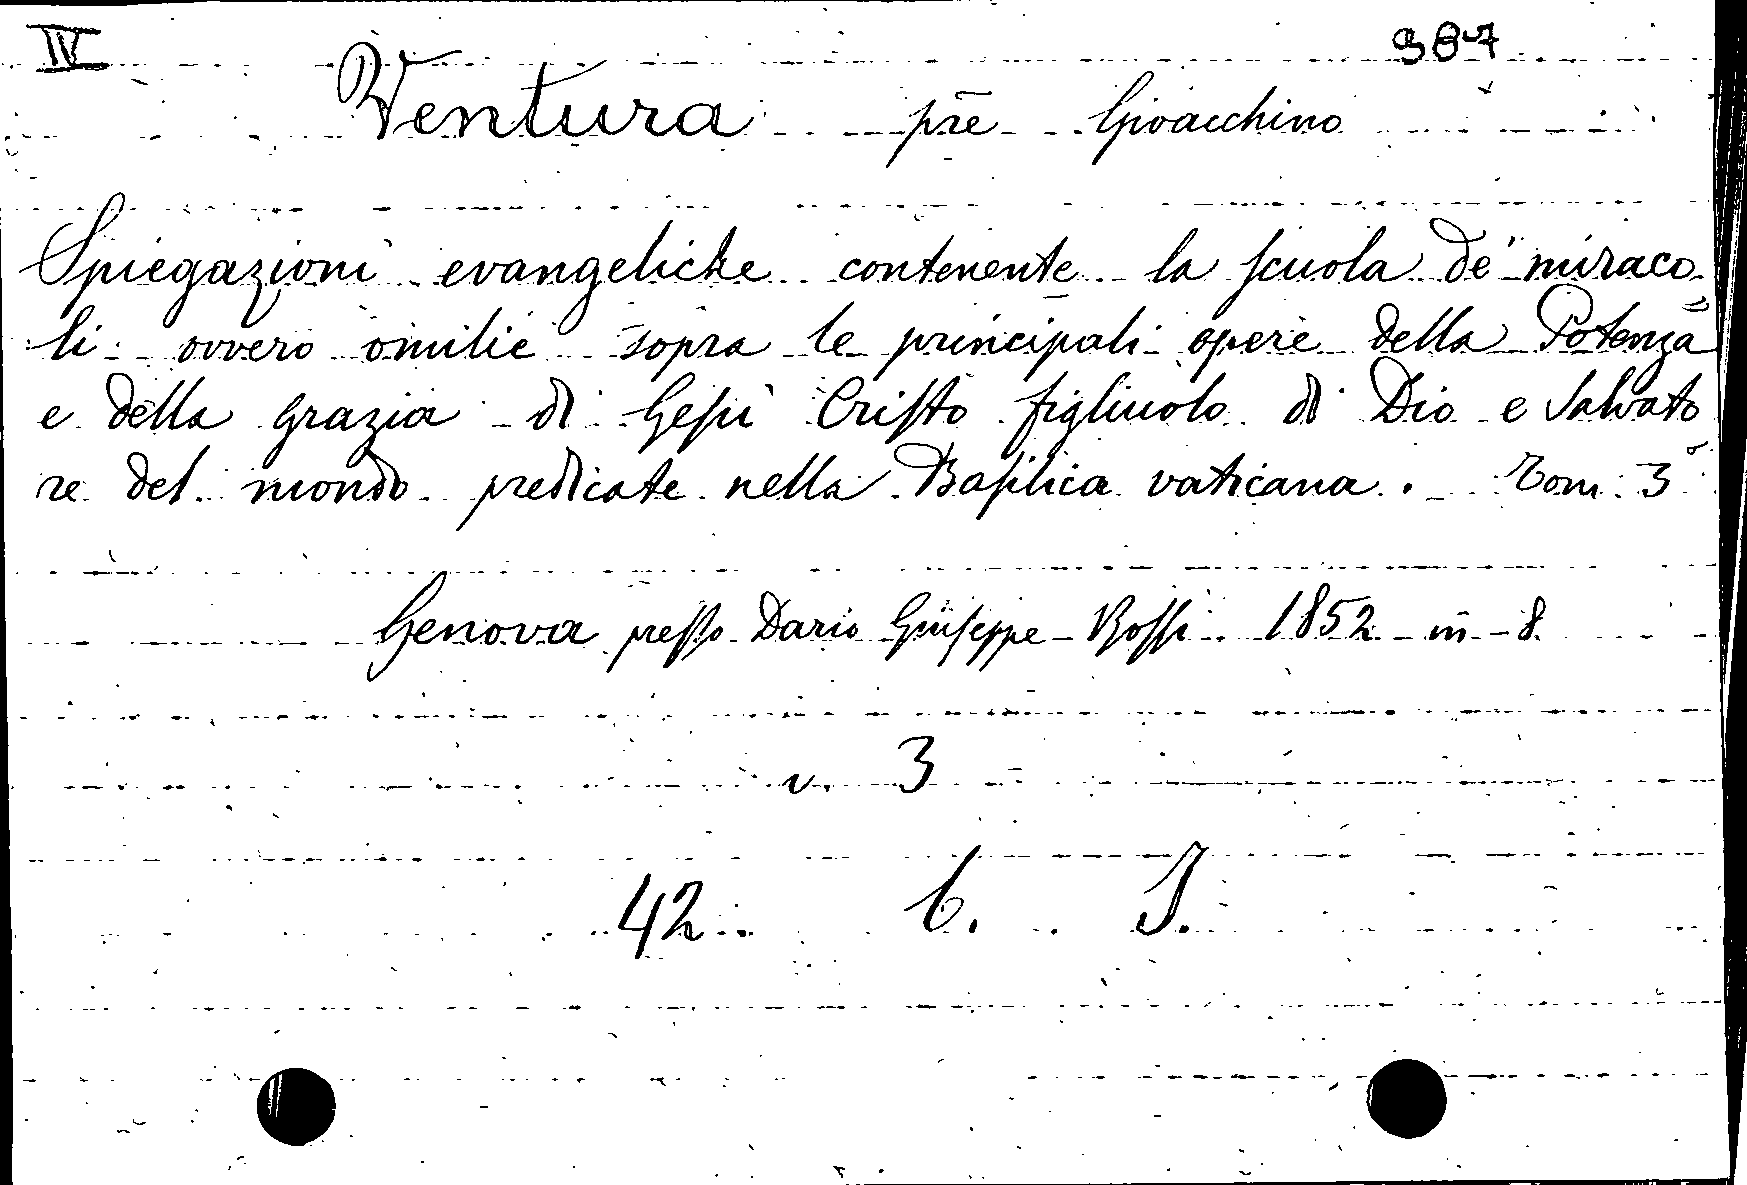 IV 987
Ventura pre Gioacchino
Spiegazioni evangeliche contenente la scuola de' miraco
li ovvero omilie sopra le principali opere della Potenza
e della grazia di Gesù Cristo figliuolo di Dio e Salvato
re del mondo predicate nella Basilica vaticana. Tom. 3°
Genova presso Dario Giuseppe Rossi 1852 in 8.
v. 3
42. C. I.